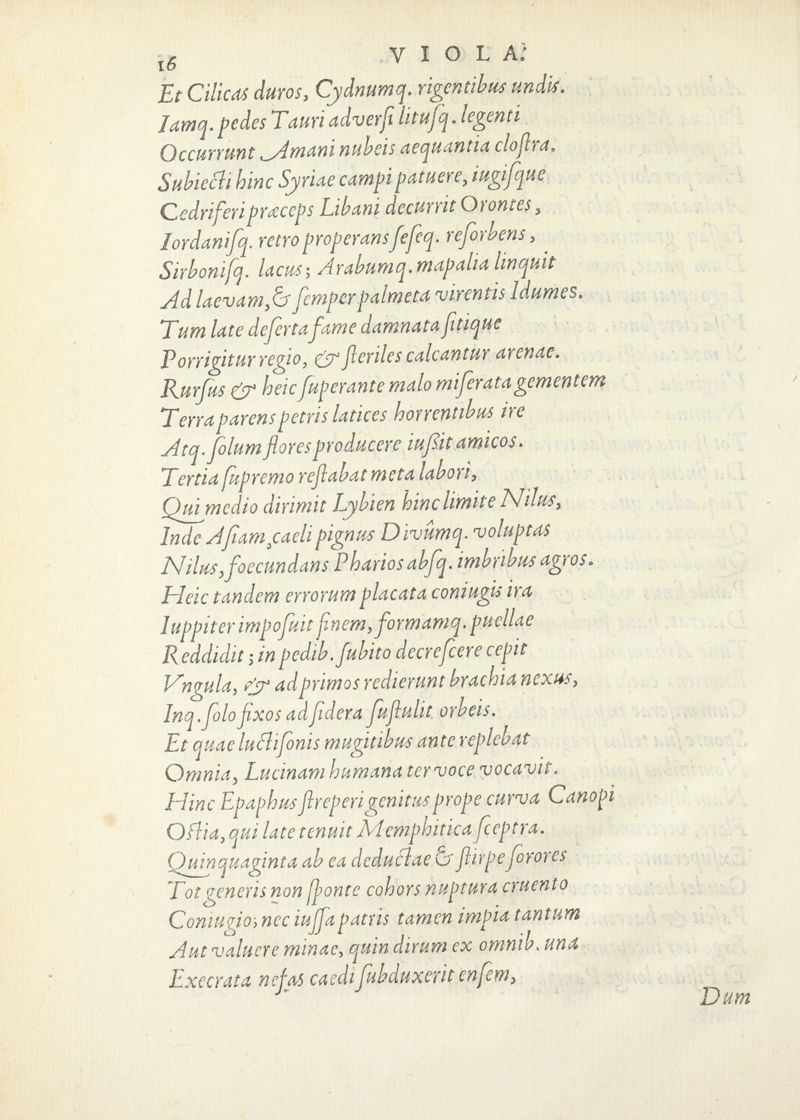 16 VIOLA.
Et Cilicas duros, Cydnumq. rigentibus undis.
Iamq. pedes Tauri adversi litusq. legenti
Occurrunt Amani nubeis aequantia clostra.
Subiecti hinc Syriae campi patuere, iugisque
Cedriferi præceps Libani decurrit Orontes,
Iordanisq. retro properans seseq. resorbens,
Sirbonisq. lacus; Arabumq. mapalia linquit
Ad laevam, & semper palmeta virentis Idumes.
Tum late deserta fame damnata sitique
Porrigitur regio, & steriles calcantur arenae.
Rursus & heic superante malo miserata gementem
Terra parens petris latices horrentibus ire
Atq. solum flores producere iussit amicos.
Tertia supremo restabat meta labori,
Qui medio dirimit Lybien hinc limite Nilus,
Inde Asiam, caeli pignus Divûmq. voluptas
Nilus, foecundans Pharios absq. imbribus agros.
Heic tandem errorum placata coniugis ira
Iuppiter imposuit finem, formamq. puellae
Reddidit; in pedib. subito decrescere cepit
Vngula, & ad primos redierunt brachia nexus,
Inq. solo fixos ad sidera sustulit orbeis.
Et quae luctisonis mugitibus ante replebat
Omnia, Lucinam humana ter voce vocavit.
Hinc Epaphus streperi genitus prope curva Canopi
Ostia, qui late tenuit Memphitica sceptra.
Quinquaginta ab ea deductae & stirpe sorores
Tot generis non sponte cohors nuptura cruento
Coniugio; nec iussa patris tamen impia tantum
Aut valuere minae, quin dirum ex omnib. una
Execrata nefas caedi subduxerit ensem,
Dum